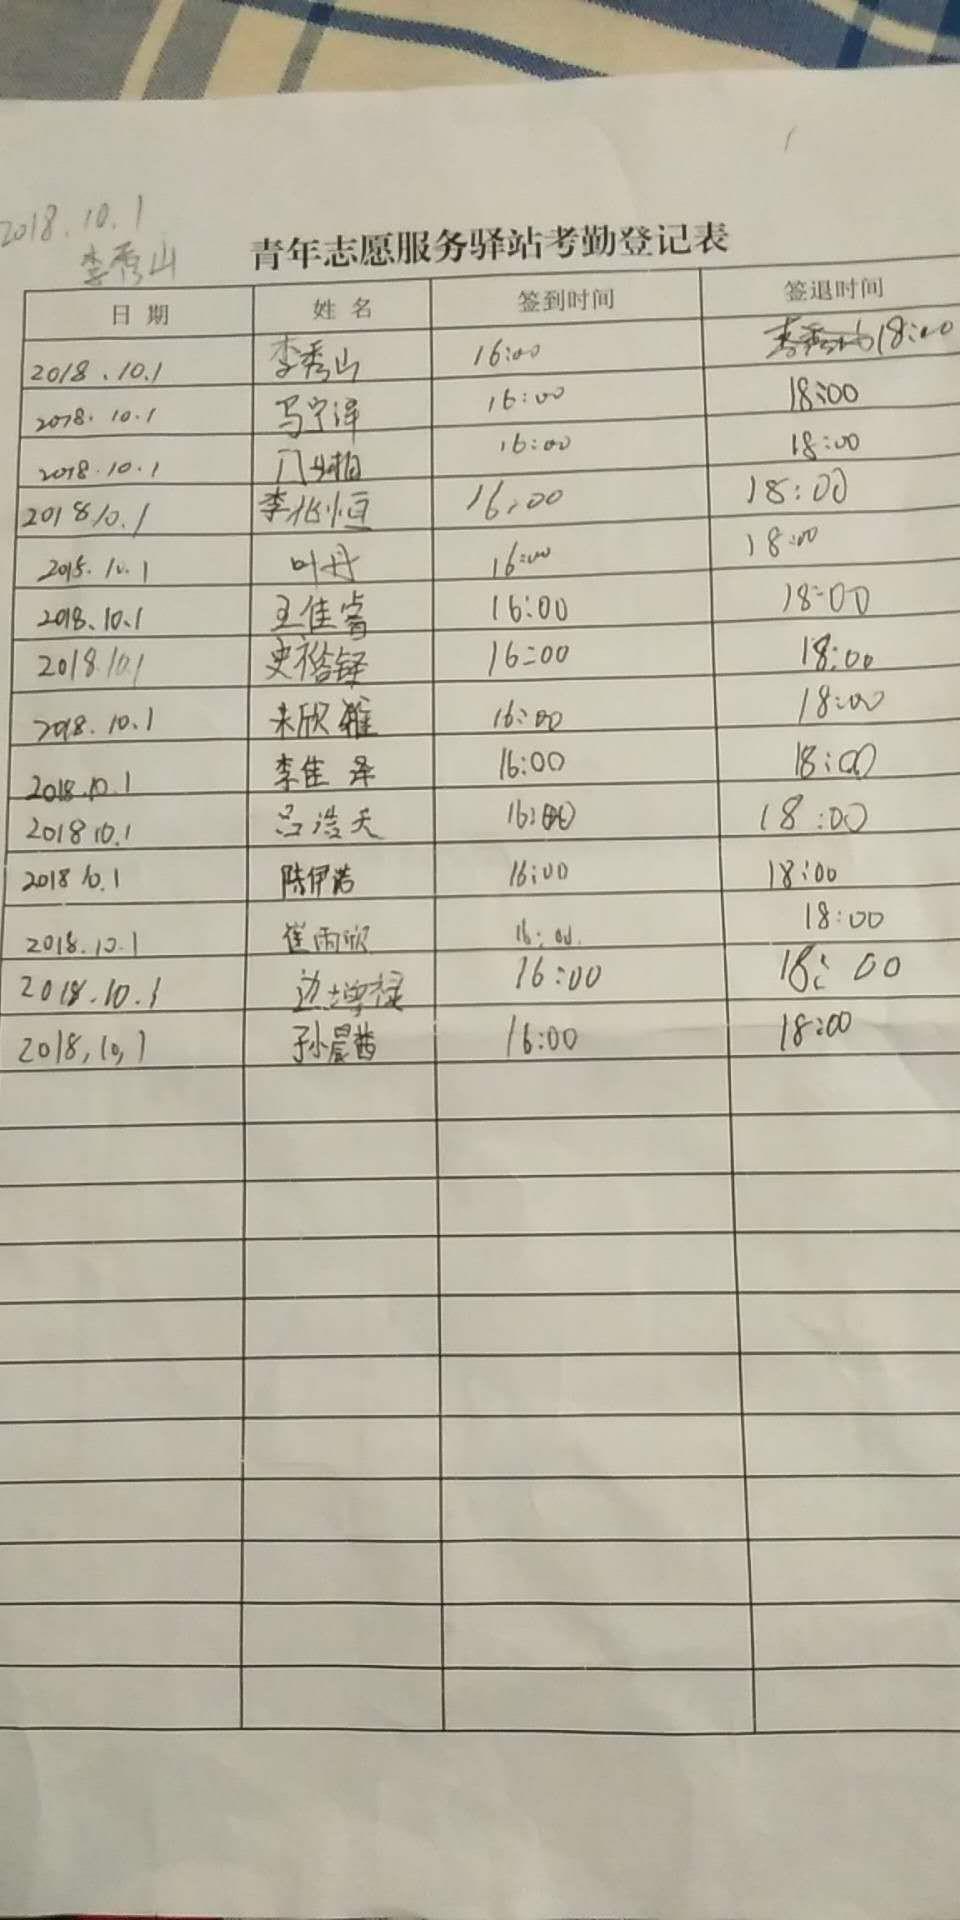 2018.10.1
李秀山
青年志愿服务驿站考勤登记表
日 期 姓 名 签到时间 签退时间
2018.10.1 李秀山 16:00 18:00
2018.10.1 马宁泽 16:00 18:00
2018.10.1 16:00 18:00
2018 10.1 李兆恒 16:00 18:00
2015.10.1 叶丹 16:00 18:00
2018.10.1 王佳睿 16:00 18:00
2018.10.1 史裕铎 16:00 18:00
2018.10.1 朱欣雅 16:00 18:00
2018.10.1 李佳泽 16:00 18:00
2018 10.1 吕浩天 16:00 18:00
2018 10.1 陈伊诺 16:00 18:00
2018.10.1 崔雨欣 16:00. 18:00
2018.10.1 16:00 18:00
2018,10,1 孙晨茜 16:00 18:00